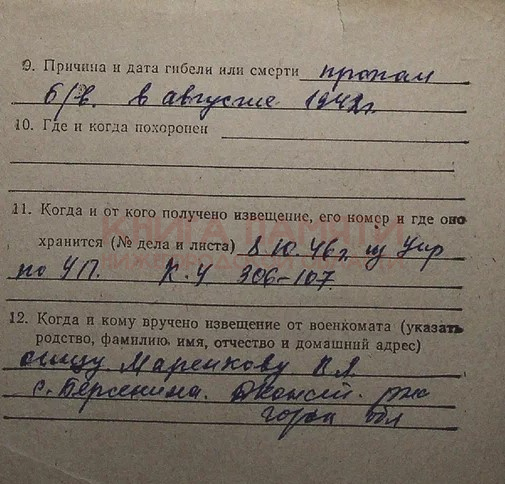 9. Причина и дата гибели или смерти пропал
б/в. в августе 1942г.
10. Где и когда похоронен
11. Когда и от кого получено извещение, его номер и где оно
хранится (№ дела и листа) 8.10.46г. из Упр
по УП. К.У 306-107.
12. Когда и кому вручено извещение от военкомата (указать
родство, фамилию, имя, отчество и домашний адрес)
отцу Маренкову
с. Берсенина.
горьк обл
КНИГА ПАМЯТИ